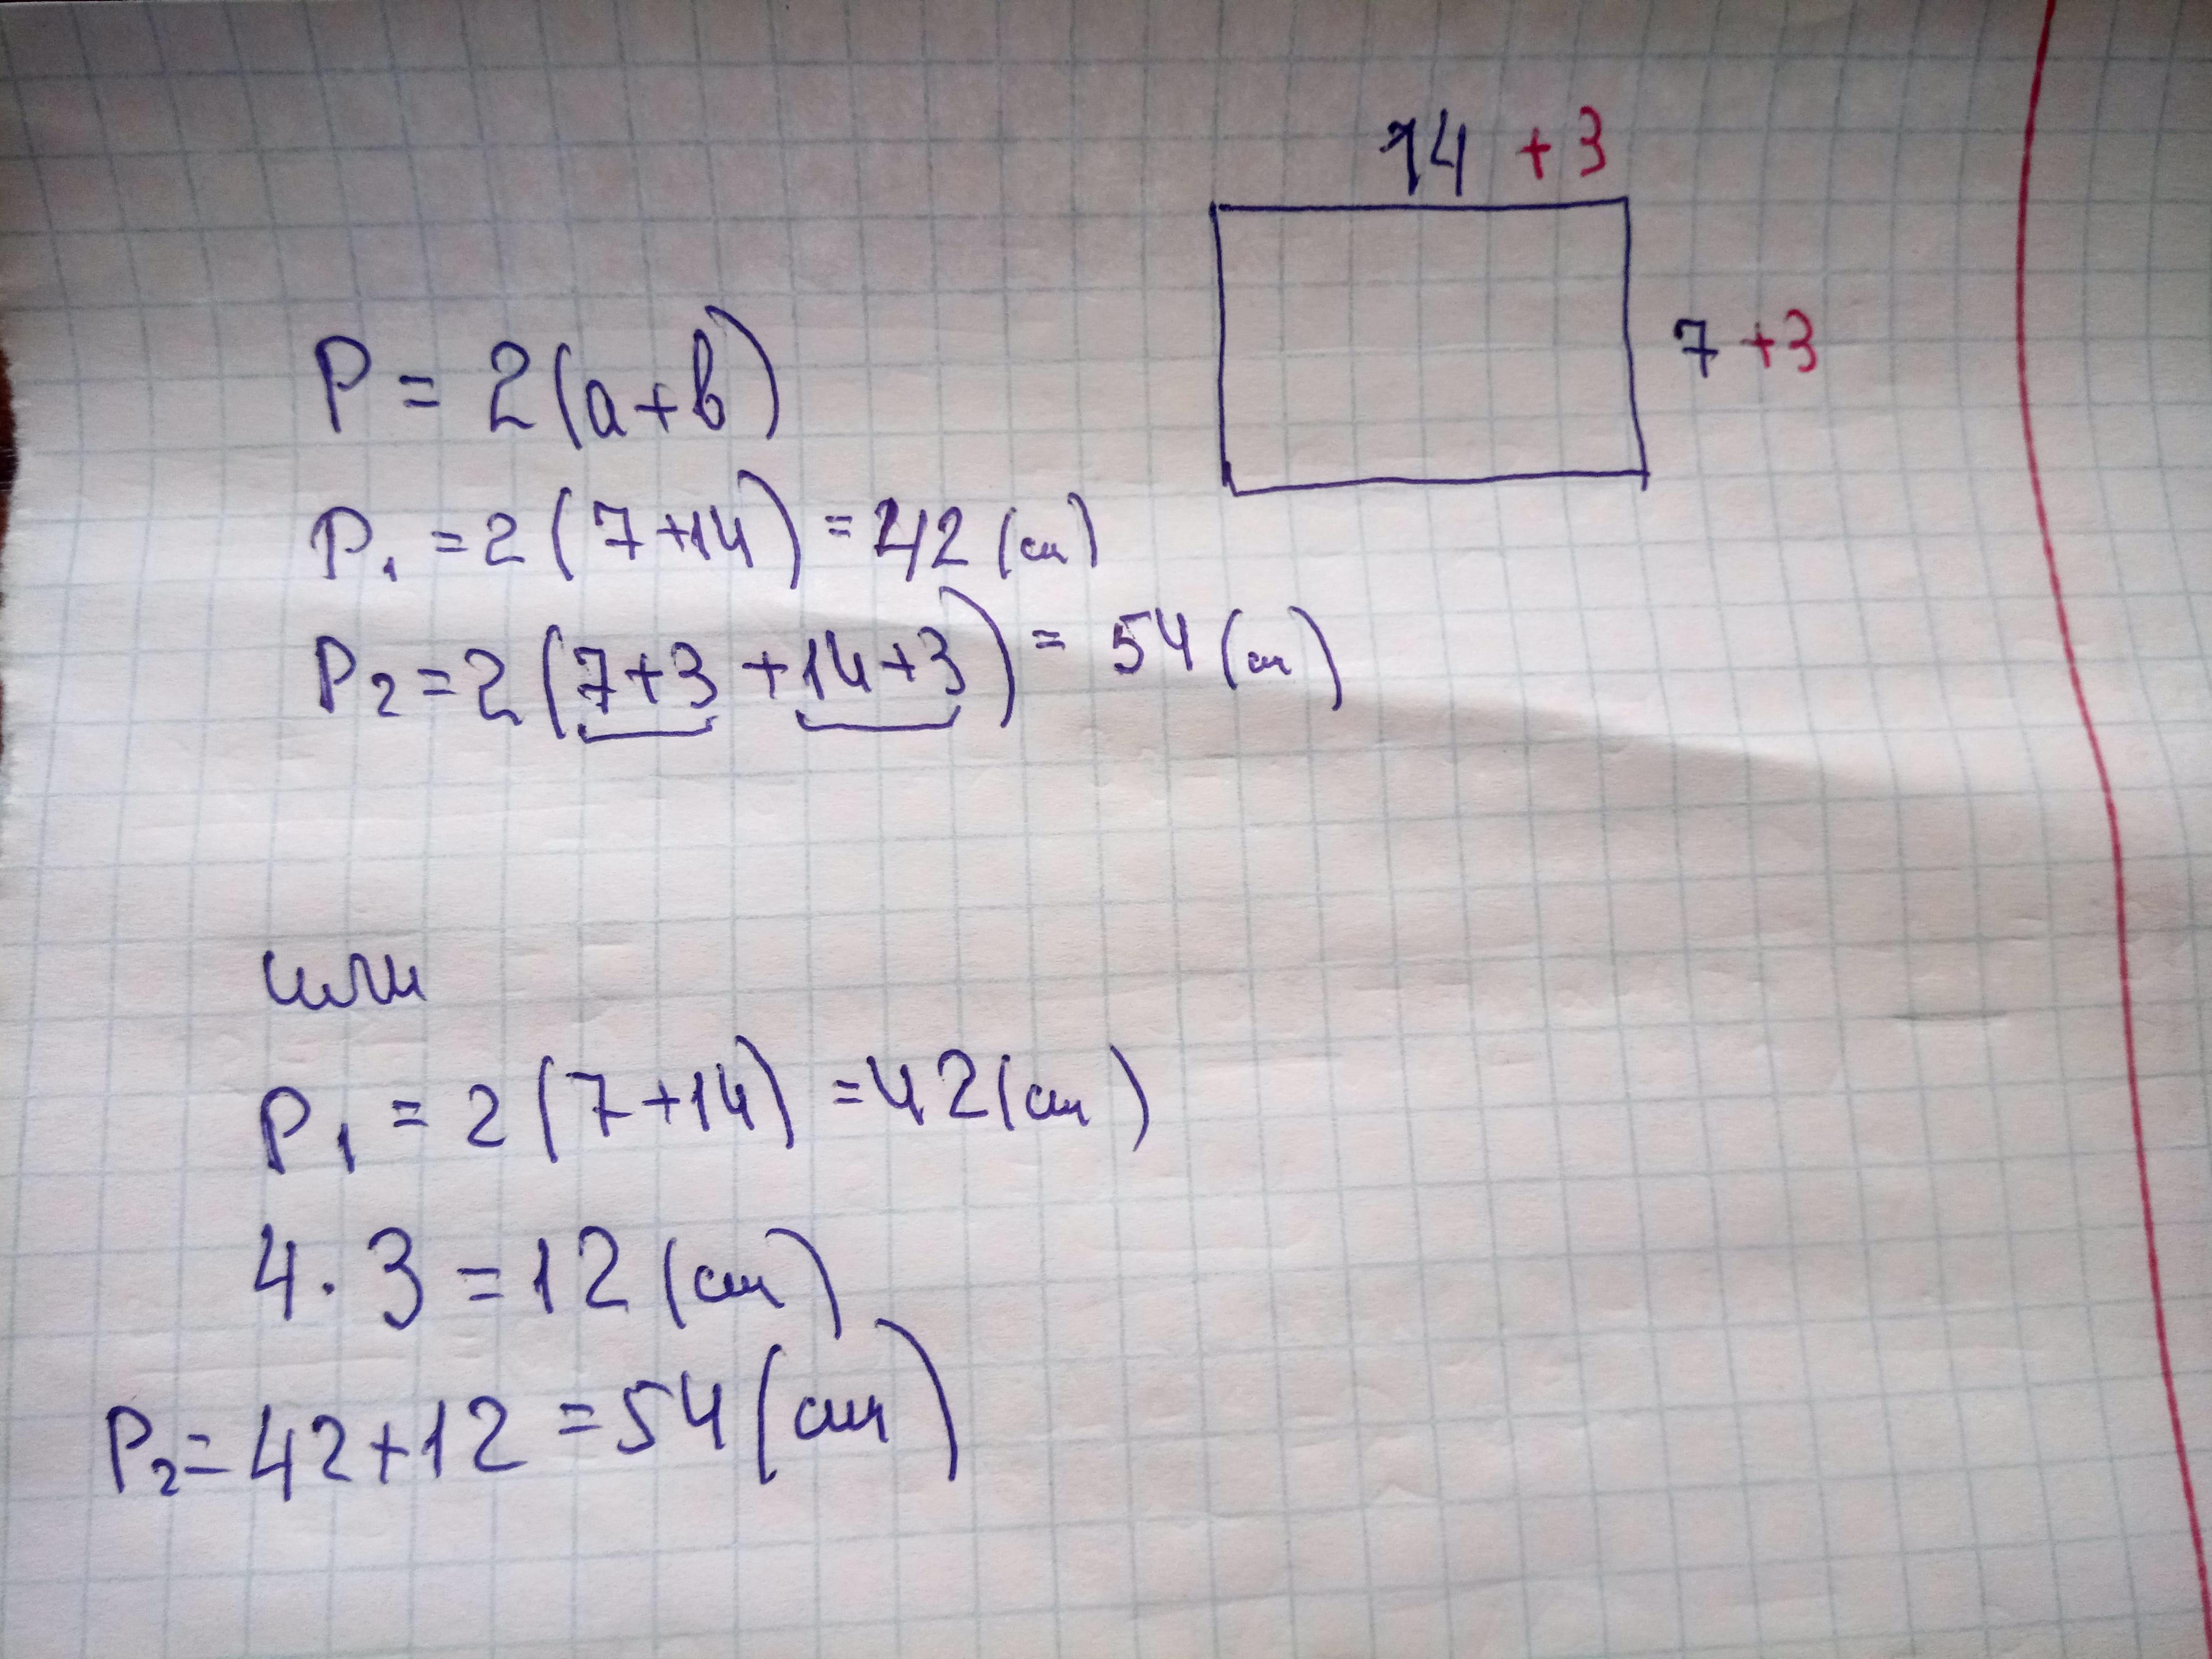 14 + 3
7 + 3
P = 2(a+b)
P₁ = 2(7+14) = 42 (см)
P₂ = 2(7+3 + 14+3) = 54 (см)
или
P₁ = 2(7+14) = 42 (см)
4 · 3 = 12 (см)
P₂ = 42 + 12 = 54 (см)